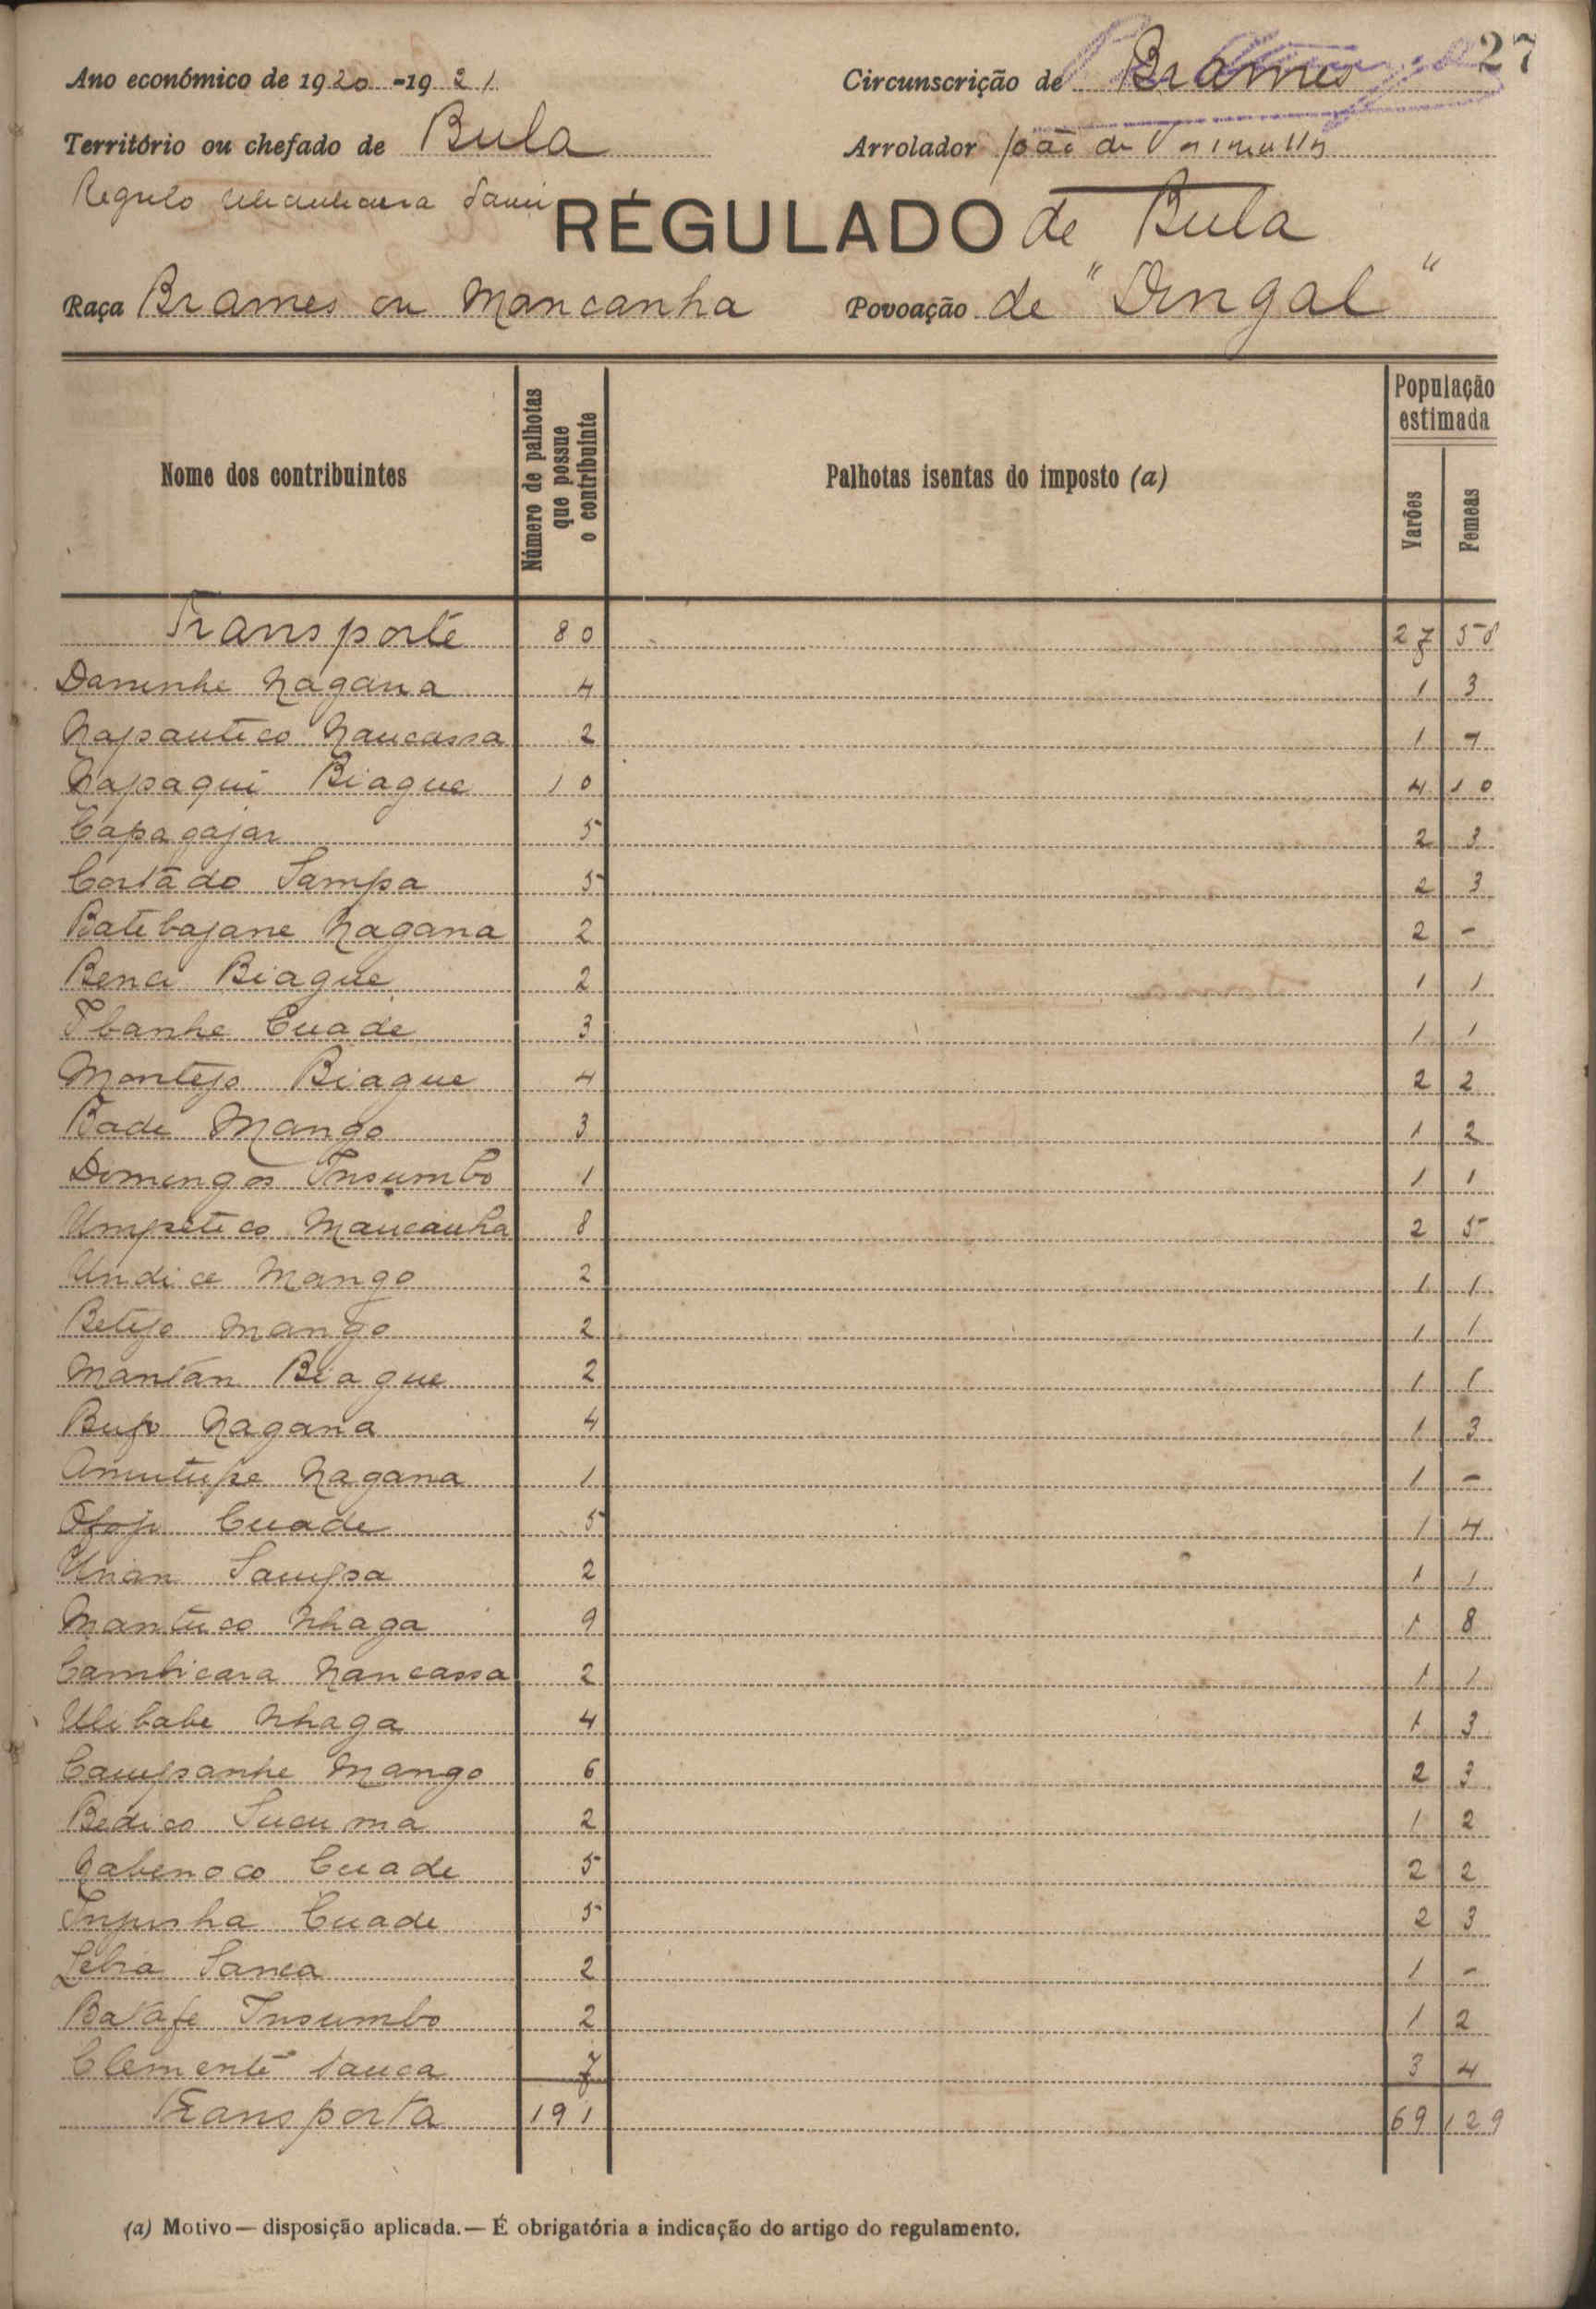 27
Ano económico de 1920-1921 Circunscrição de Brames
Território ou chefado de Bula Arrolador João de
Regulo RÉGULADO de Bula
Raça Brames ou Mancanha Povoação de "Dingal"
Nome dos contribuintes Número de palhotas que possue o contribuinte Palhotas isentas do imposto (a) População estimada Varões Femeas
Transporte 80 27 58
Daninhe Nagana 4 1 3
Napantico Nancassa 2 1 -
Napaqui Biague 10 4 10
Capagajar 5 2 3
Cortado Sampa 5 2 3
Batebajane Nagana 2 2 -
Benci Biague 2 1 1
Ibanhe Cuade 3 1 1
Montejo Biague 4 2 2
Bade Mango 3 1 2
Domingos Insumbo 1 1 1
Umpetico Mancanha 8 2 5
Undice Mango 2 1 1
Betijo Mango 2 1 1
Mantan Biague 2 1 1
Bufo Nagana 4 1 3
Amutupe Nagana 1 1 -
Cuade 5 1 4
Unan Sampa 2 1 1
Mantuco Nhaga 9 1 8
Cambicara Nancassa 2 1 1
Ulibabe Nhaga 4 1 3
Campanhe Mango 6 2 3
Bedico Sucuma 2 1 2
Nabenoco Cuade 5 2 2
Cuade 5 2 3
Lebia Sanca 2 1 -
Batafe Insumbo 2 1 2
Clemente Sanca 7 3 4
Transporta 191 69 129
(a) Motivo — disposição aplicada. — É obrigatória a indicação do artigo do regulamento.